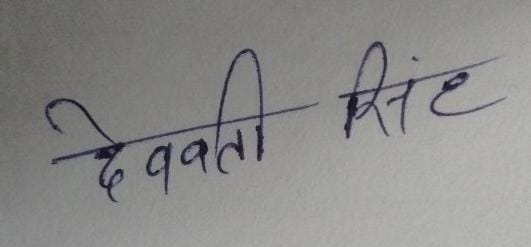 देववती सिंह